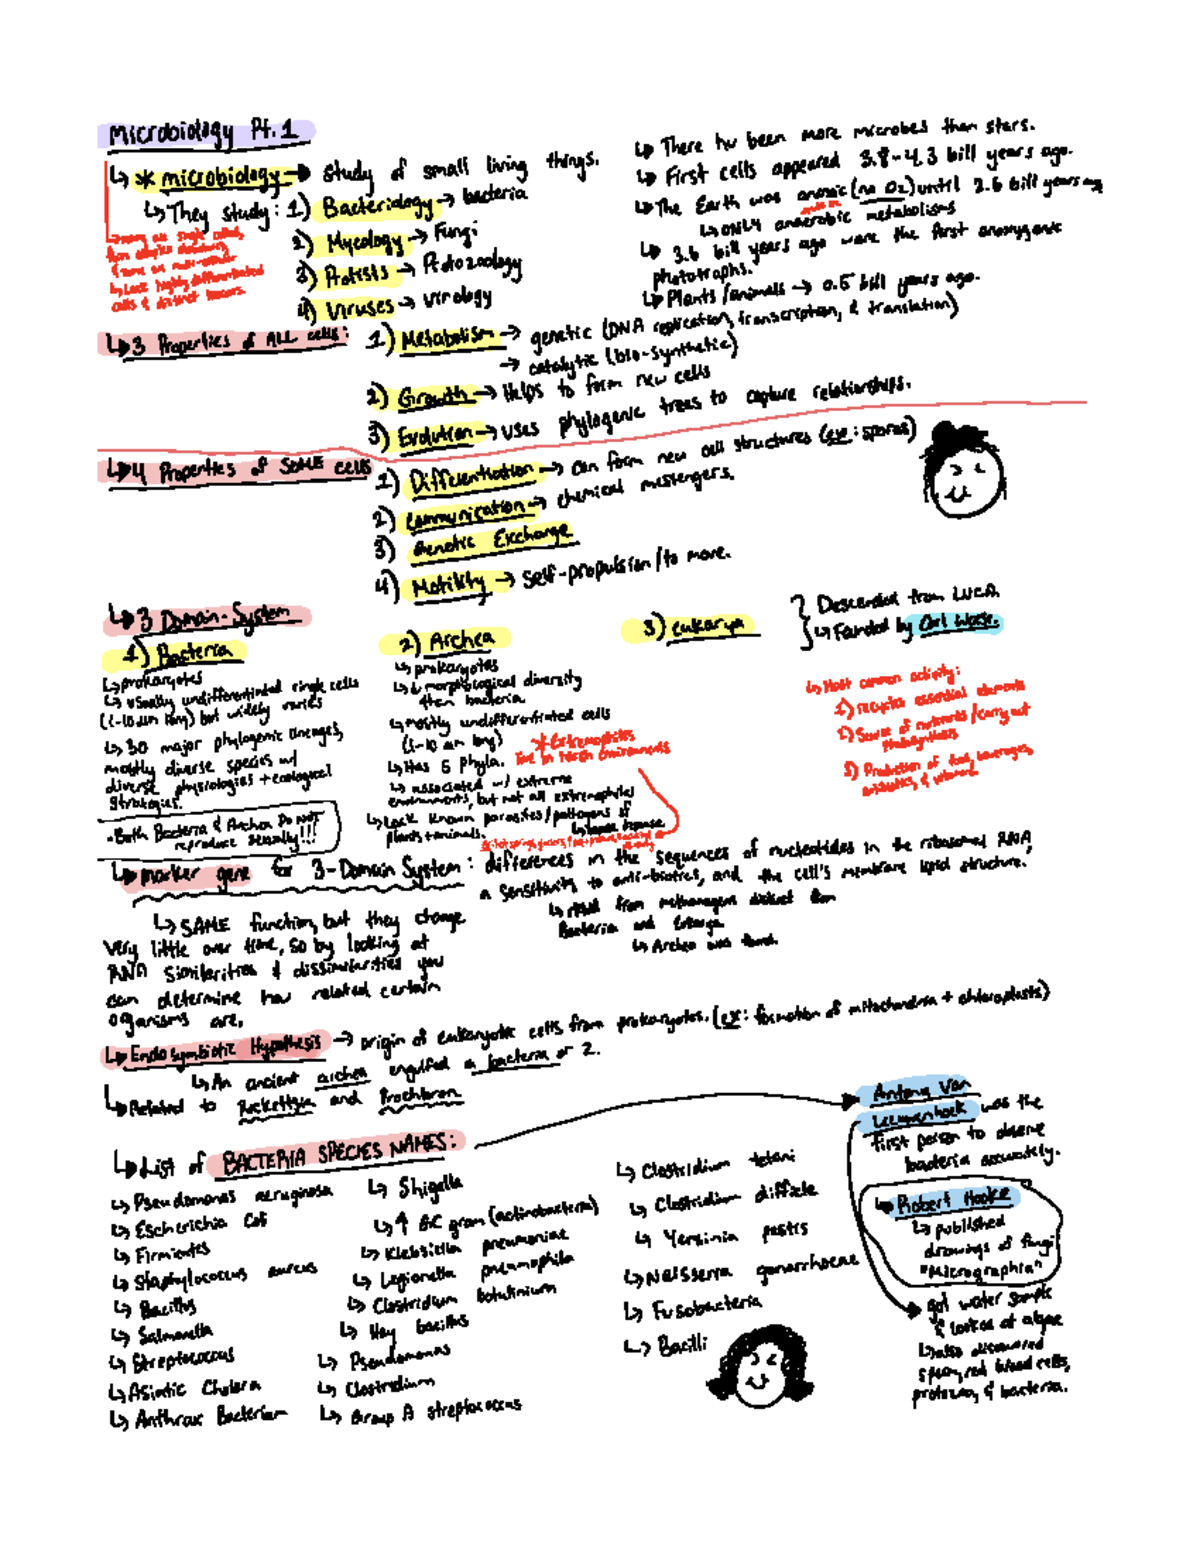 Microbiology Pt. 1
↳ * microbiology → study of small living things.
↳ They study: 1) Bacteriology → bacteria
2) Mycology → Fungi
3) Protists → Protozoology
4) Viruses → virology
↳ many are single celled,
& some are multi-cellular
↳ Lack highly differentiated
cells & distinct tissues.
↳ There hav been more microbes than stars.
↳ First cells appeared 3.8-4.3 bill years ago.
↳ The Earth was anoxic (no O2) until 2.6 bill years ago
↳ only anaerobic metabolisms
↳ 3.6 bill years ago were the first anoxygenic
phototraphs.
↳ Plants/animals → 0.5 bill years ago.
↳ 3 Properties of ALL cells:
1) Metabolism → genetic (DNA replication, transcription, & translation)
→ catalytic (bio-synthetic)
2) Growth → Helps to form new cells
3) Evolution → uses phylogenic trees to capture relationships.
↳ 4 Properties of SOME cells
1) Differentiation → can form new cell structures (ex: spores)
2) Communication → chemical messengers.
3) Genetic Exchange
4) Motility → self-propulsion/to more.
↳ 3 Domain-System
1) Bacteria
↳ prokaryotes
↳ usually undifferentiated single cells
(1-10 um long) but widely varies
↳ 30 major phylogenic lineages,
mostly diverse species w/
diverse physiologies + ecological
strategies.
- Both Bacteria & Archea DO NOT
reproduce sexually!!!
2) Archea
↳ prokaryotes
↳ ↓ morphological diversity
than bacteria
↳ mostly undifferentiated cells
(1-10 um long)
↳ Has 5 phyla.
↳ associated w/ extreme
environments, but not all extremophiles
↳ Lack known parasites/pathogens of
plants + animals.
* Extremophiles
live in harsh environments
3) eukarya
Descended from LUCA
↳ Founded by Carl Woese.
↳ Most common activity:
1) recycles essential elements
2) Source of nutrients/carry out
photosynthesis
3) Production of food, beverages,
antibiotics, & vitamins
↳ marker gene for 3-Domain System: differences in the sequences of nucleotides in the ribosomal RNA,
a sensitivity to anti-biotics, and the cell's membrane lipid structure.
↳ rRNA from methanogens distinct from
Bacteria and Eukarya
↳ Archea was found.
↳ SAME function, but they change
very little over time, so by looking at
RNA similarities & dissimilarities you
can determine how related certain
organisms are.
↳ Endosymbiotic Hypothesis → origin of eukaryotic cells from prokaryotes. (ex: formation of mitochondria + chloroplasts)
↳ An ancient archea engulfed a bacteria or 2.
↳ Related to Rickettsia and Prochloron
↳ List of BACTERIA SPECIES NAMES:
↳ Pseudomonas aeruginosa
↳ Escherichia Coli
↳ Firmicutes
↳ Staphylococcus aureus
↳ Bacillus
↳ Salmonella
↳ Streptococcus
↳ Asiatic Cholera
↳ Anthrax Bacterium
↳ Shigella
↳ ↑ GC gram (actinobacteria)
↳ Klebsiella pneumoniae
↳ Legionella pneumophila
↳ Clostridium botulinium
↳ Hay bacillus
↳ Pseudomonas
↳ Clostridium
↳ Group A streptococcus
↳ Clostridium tetani
↳ Clostridium difficile
↳ Yersinia pestis
↳ Neisseria gonorrhoeae
↳ Fusobacteria
↳ Bacilli
Antony Van
Leewenhoek was the
first person to observe
bacteria accurately.
↳ Robert Hooke
↳ published
drawings of fungi
"Micrographia"
got water sample
& looked at algae
↳ also discovered
sperm, red blood cells,
protozoa, & bacteria.